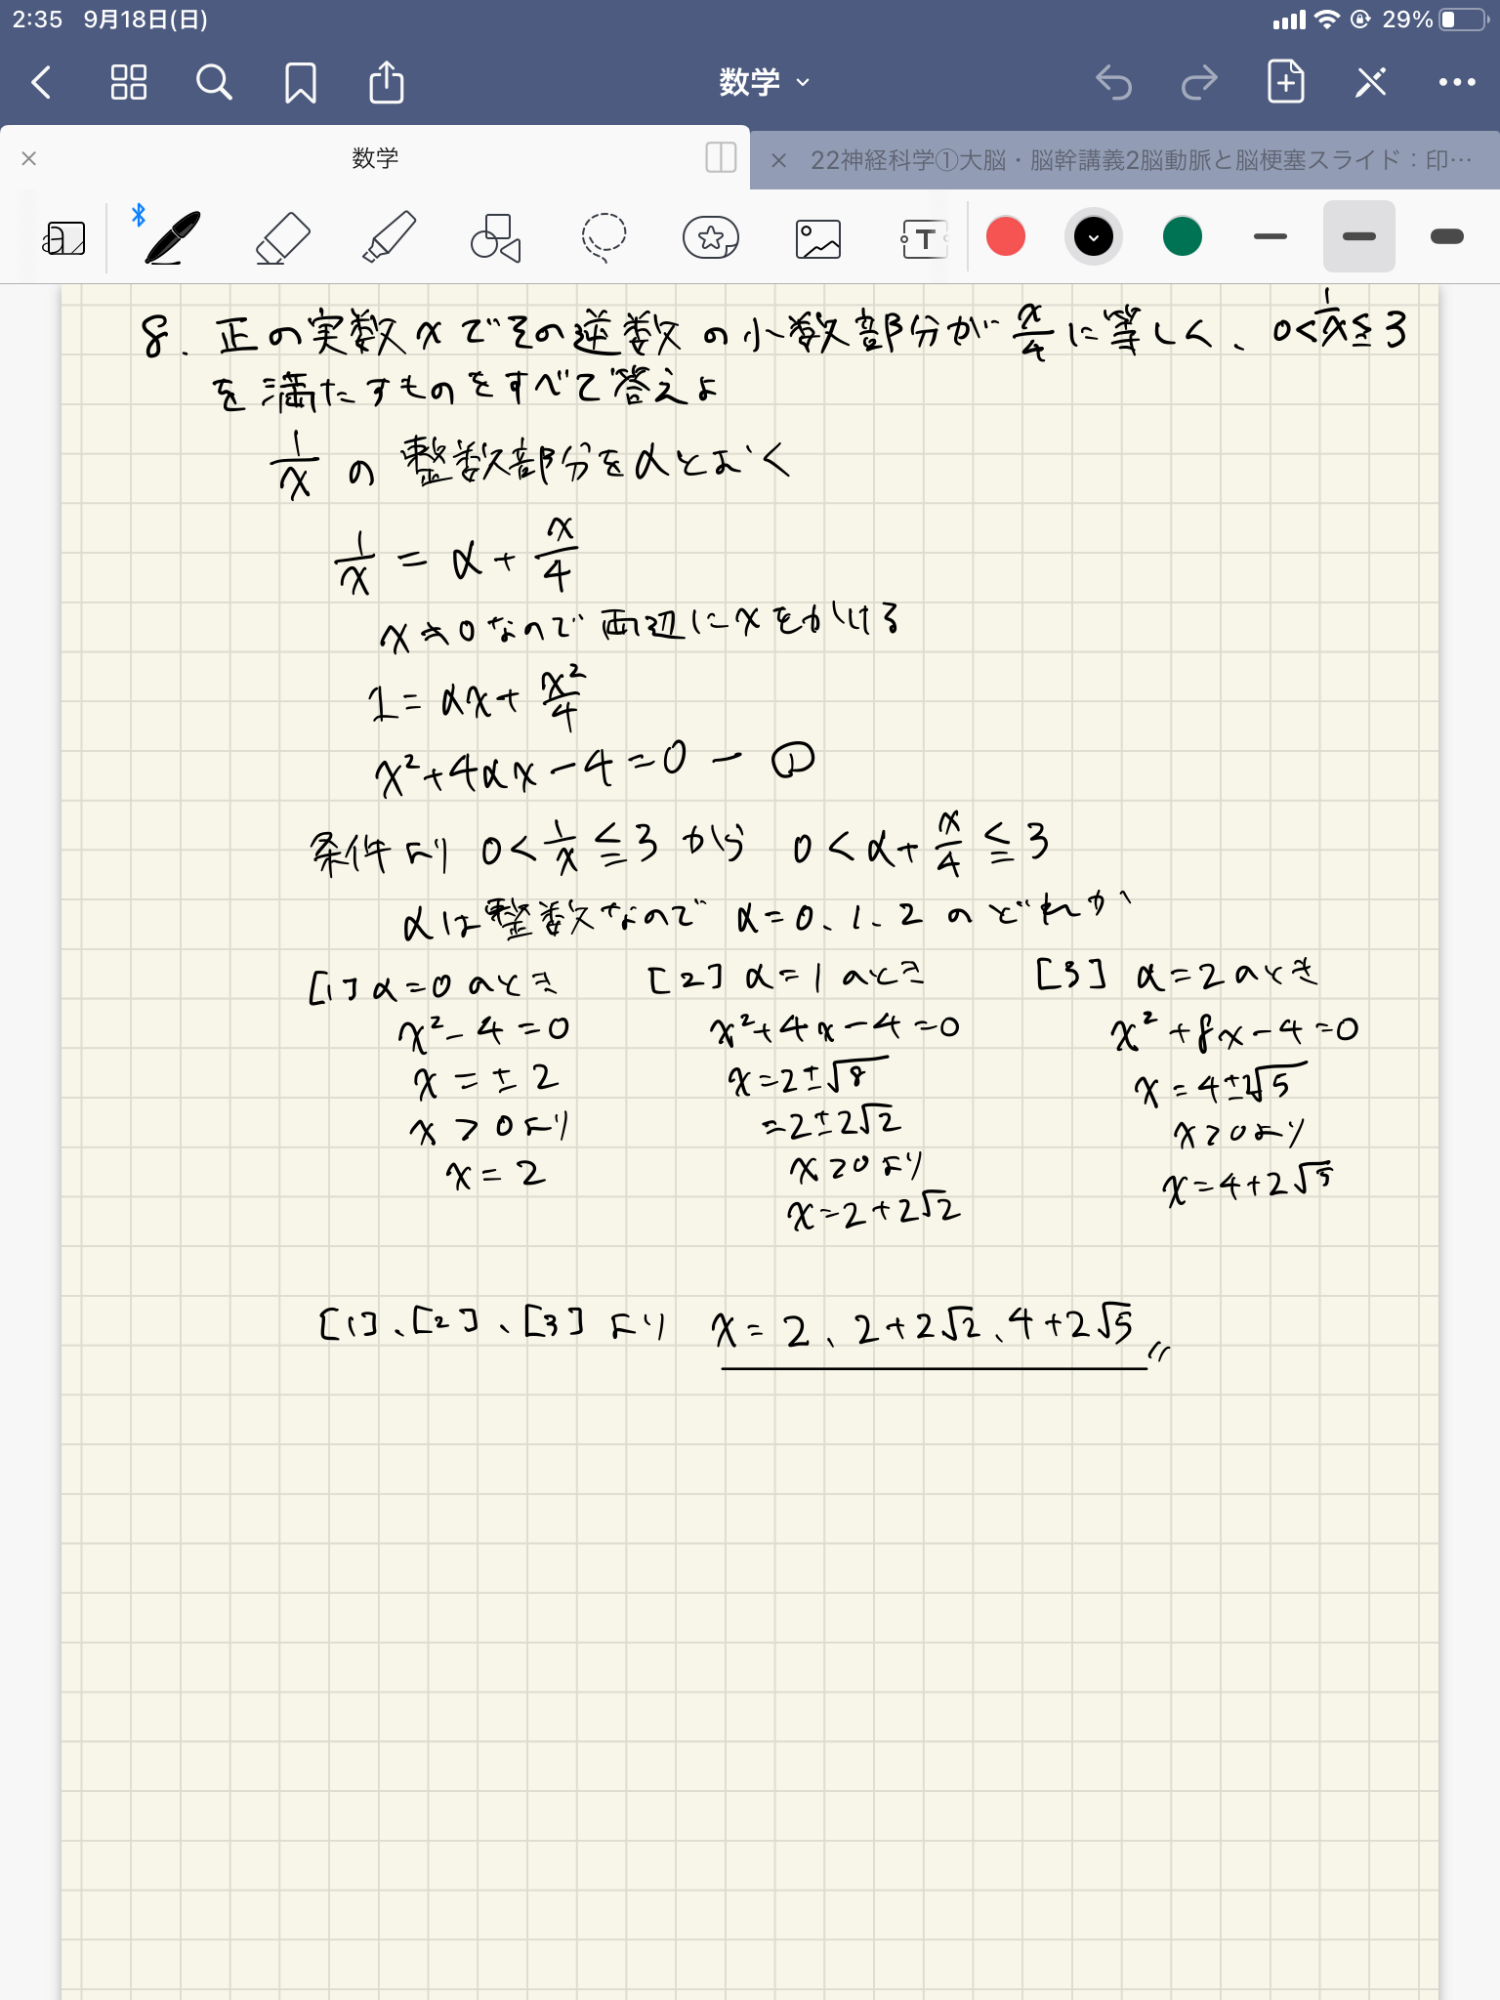 2:35 9月18日(日) 29%
数学
数学
22神経科学①大脳・脳幹講義2脳動脈と脳梗塞スライド：印…
T
8. 正の実数xでその逆数の小数部分がx/4に等しく、0<1/x≦3
を満たすものをすべて答えよ
1/xの整数部分をαとおく
1/x = α + x/4
x≠0なので両辺にxをかける
1 = αx + x²/4
x²+4αx-4=0 - ①
条件より 0<1/x≦3 から 0<α+x/4≦3
αは整数なので α=0、1、2のどれか
[1] α=0のとき
x²-4=0
x=±2
x>0より
x=2
[2] α=1のとき
x²+4x-4=0
x=2±√8
=2±2√2
x>0より
x=2+2√2
[3] α=2のとき
x²+8x-4=0
x=4±2√5
x>0より
x=4+2√5
[1]、[2]、[3]より x=2、2+2√2、4+2√5〃